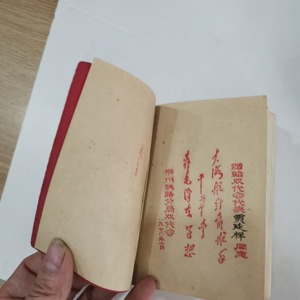 赠给双代会代表 同志
大海航行靠舵手
干革命靠
毛泽东思想
州铁路分局双代会
一九七 年 月